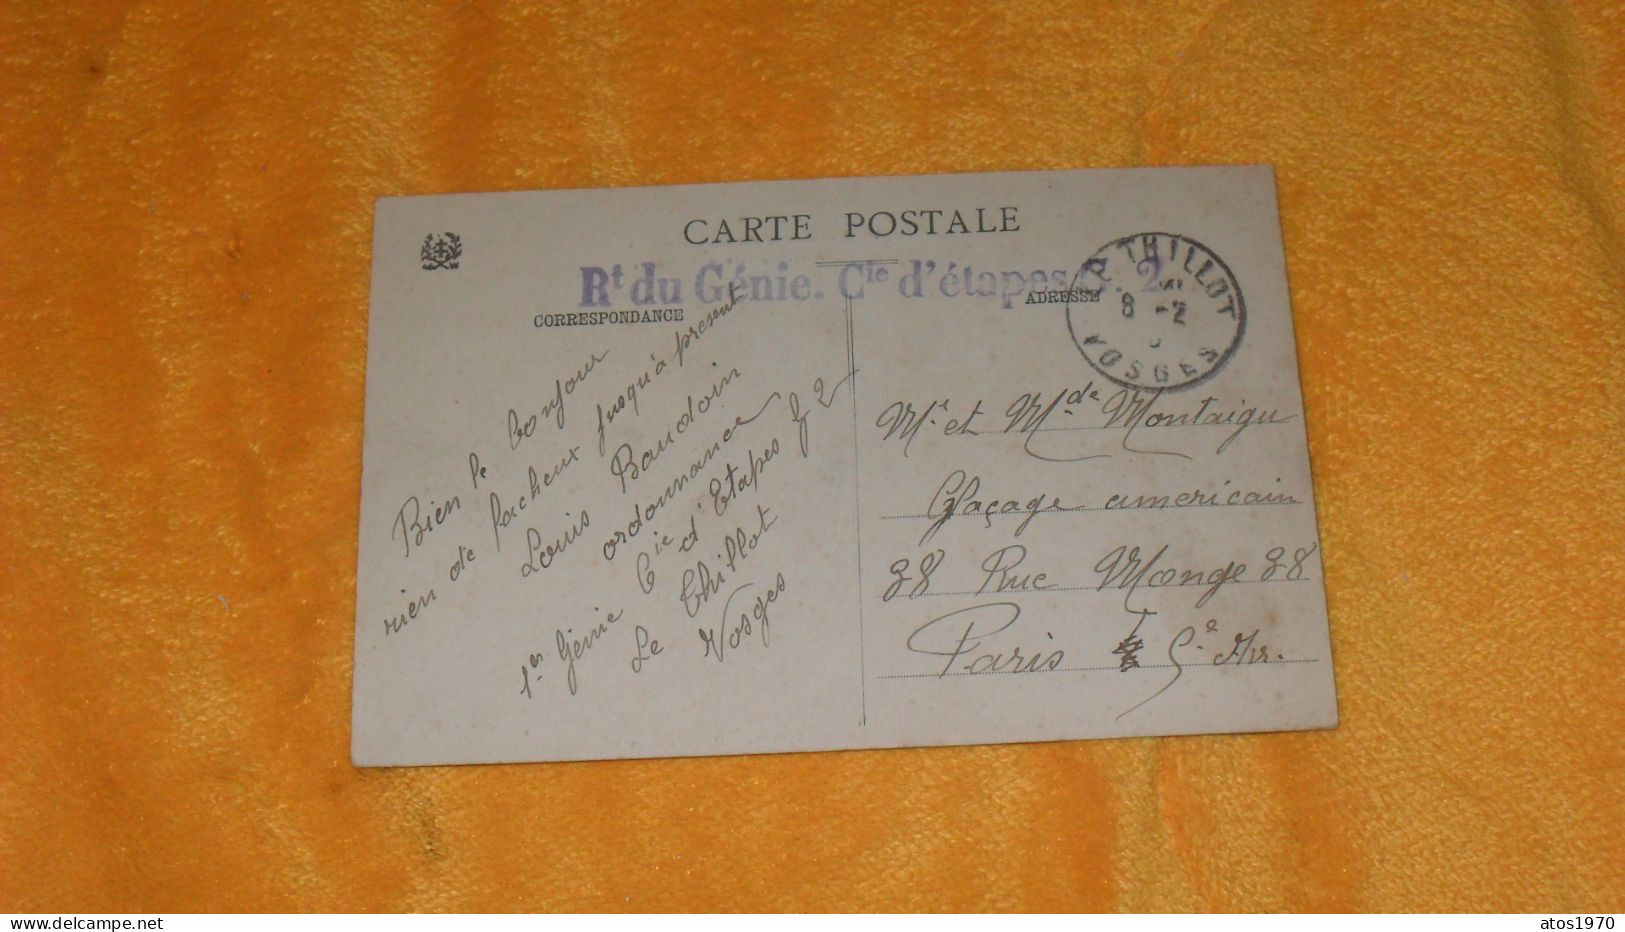 CARTE POSTALE
Rt du Génie. Cie d'étapes G. 2
CORRESPONDANCE
ADRESSE
LE THILLOT
8 -2
VOSGES
Bien le bonjour
rien de facheux jusqu'à present
Louis Baudoin
ordonnance
1er Génie Cie d'Etapes G 2
Le Thillot
Vosges
Mr et Mde Montaigu
Glaçage americain
38 Rue Monge 38
Paris 5e Arr.
atos1970